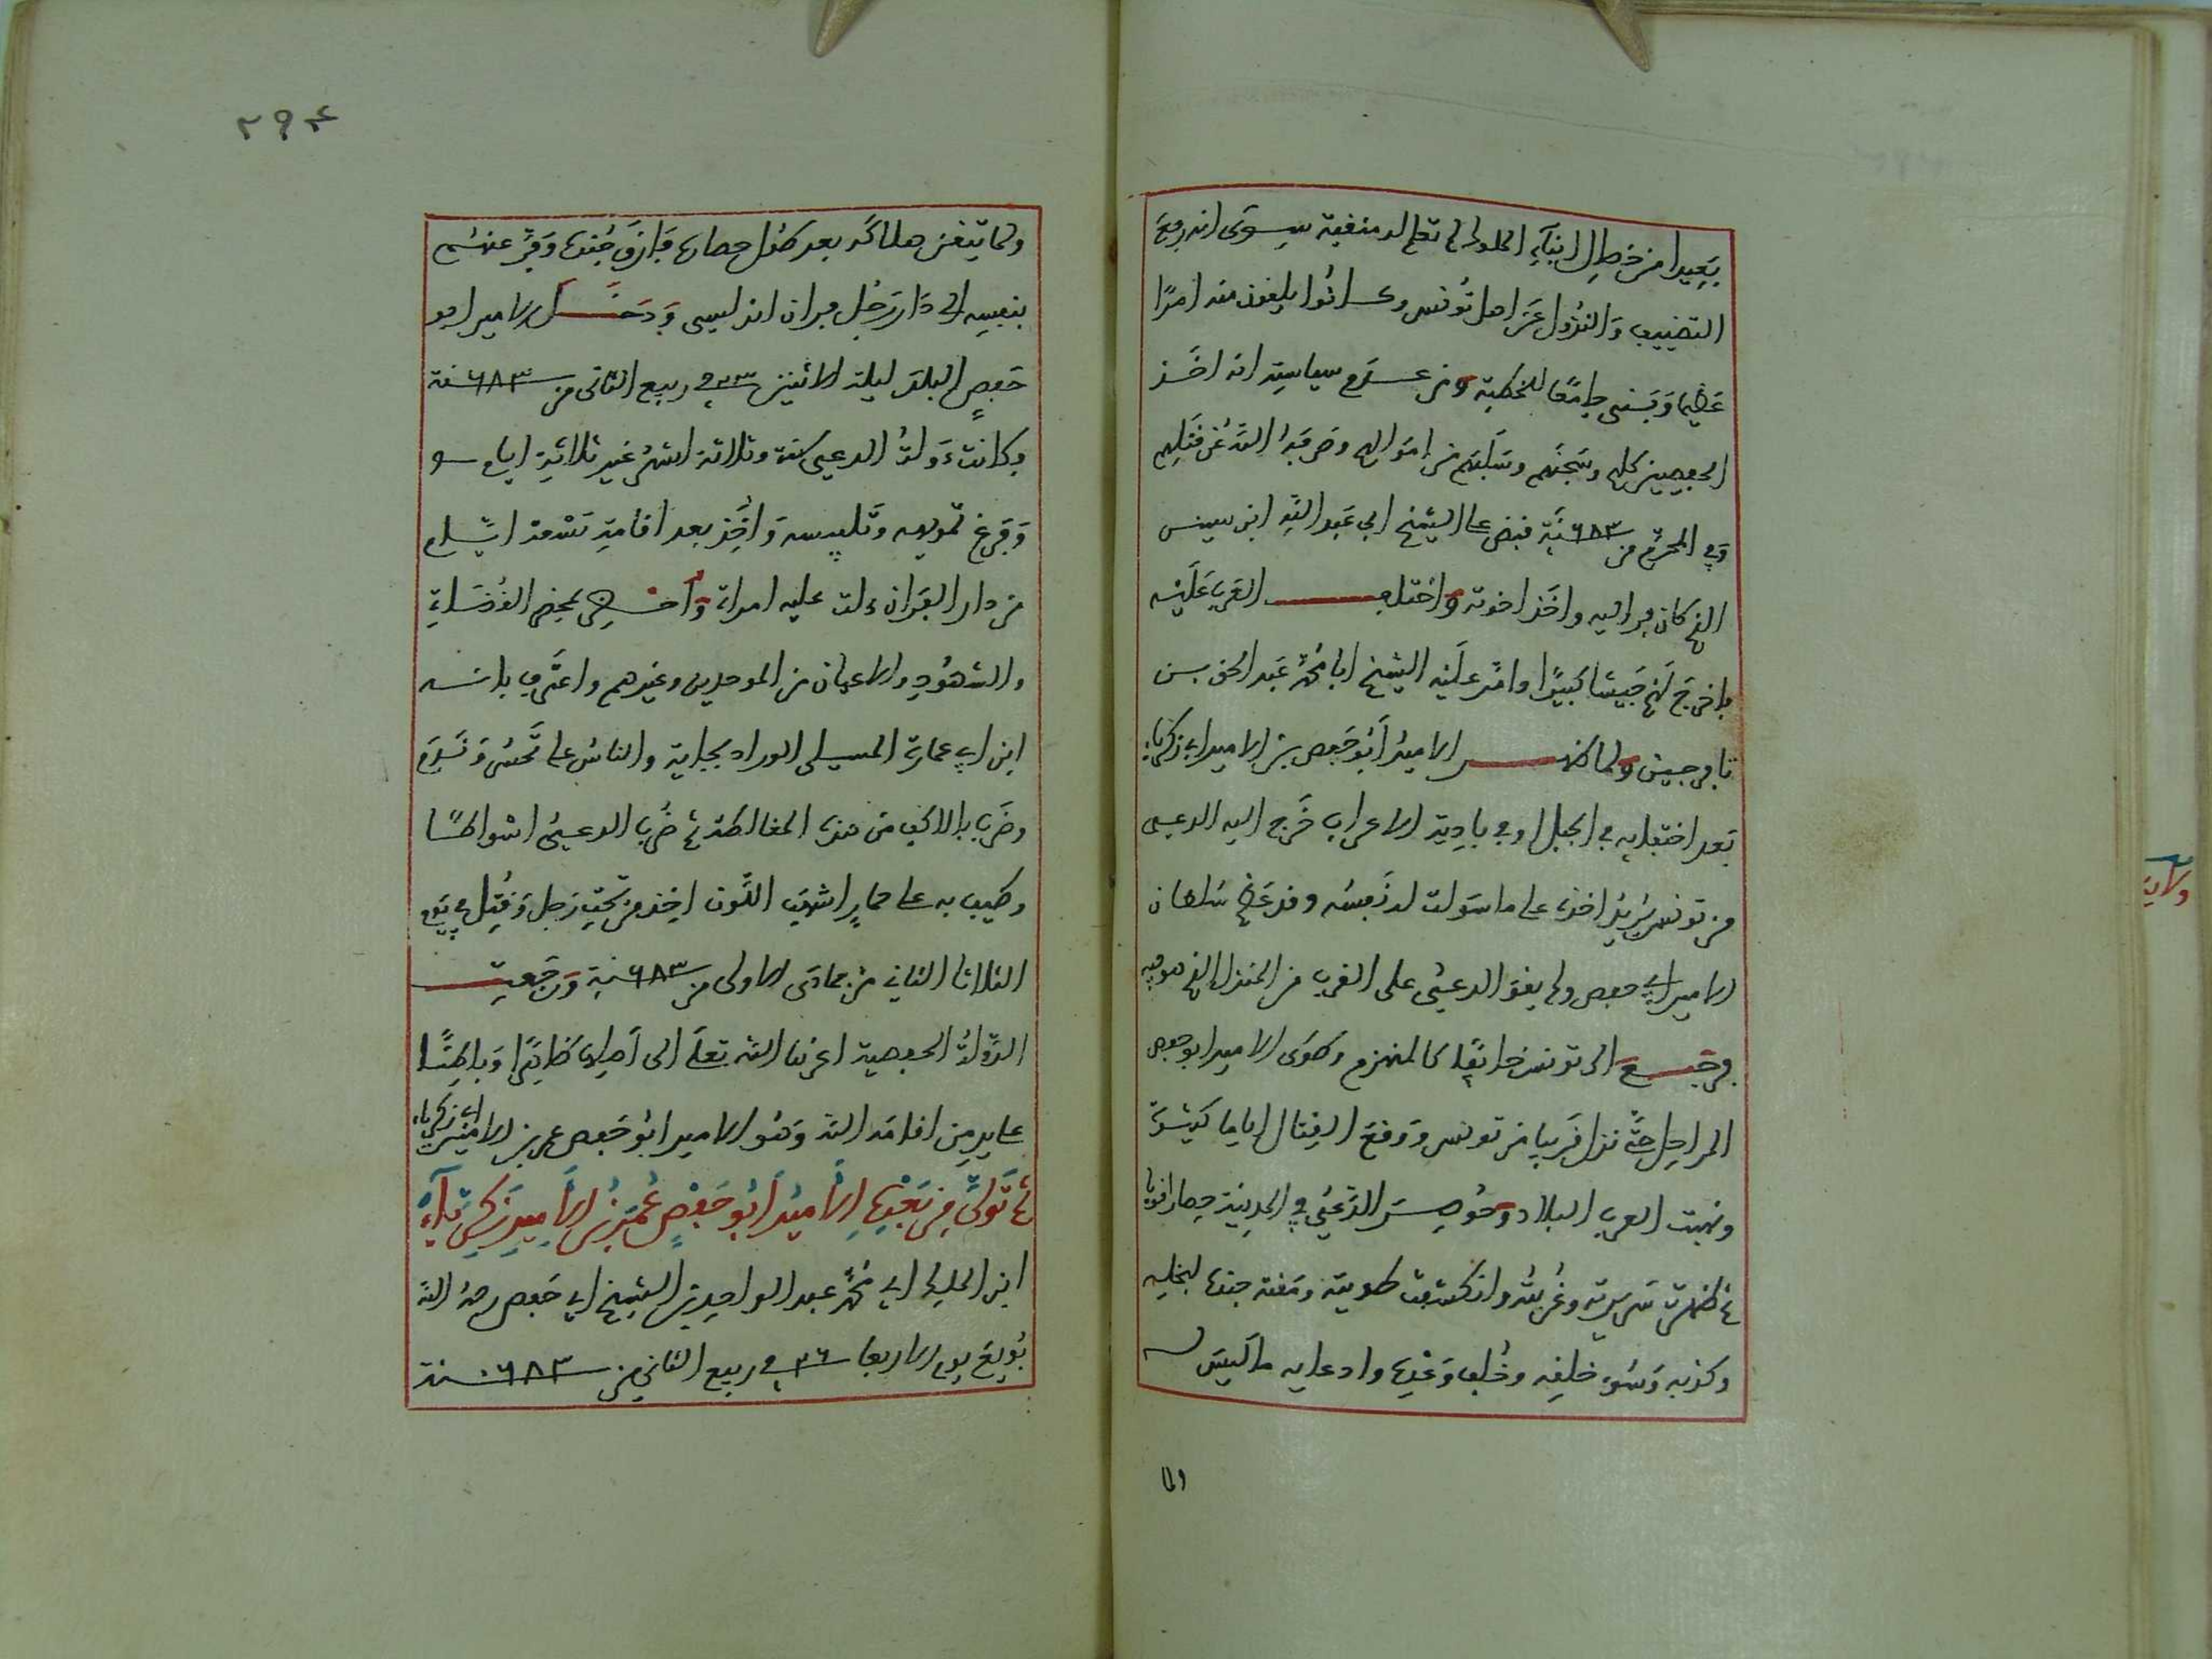 بعيدا من خصال ابناء الملوك لم تعلم له منقبة سوى انه رفع
التضييف والنزول عن اهل تونس وكانوا يلقون منه امرًا
عظيما وبنى جامعًا للخطبة ومن عدم سياسته انه اخذ
الحفصيين كلهم وسجنهم وسلبهم من اموالهم وصرفه الله عن قتلهم
وفي المحرم من ٦٨٣ سنة قبض على الشيخ ابي عبد الله ابن
الذي كان فر اليه واخذ اخوته واختلف العرب عليه
فاخرج لهم جيشا كبيرًا وامّر عليه الشيخ ابا محمد عبد الحق بن
تافرجين ولما ظهر الامير ابو حفص بن الامير ابي زكرياء
بعد اختفايه في الجبل او في بادية الاعراب خرج اليه الدعي
من تونس يريد اخذه على ما سولت له نفسه وقد عظم سلطان
الامير ابي حفص ولم يقو الدعي على القرب من المنزل الذي هو فيه
فرجع الى تونس خائفًا كالمنهزم وطوى الامير ابو حفص
المراحل حتى نزل قريبا من تونس ووقع القتال اياما كثيرة
ونهبت العرب البلاد وحوصر الدعي في المدينة حصارا قويا
ثم ظهرت سريرته وانكشفت طويته ومقته جنده لبخله
وكذبه وسوء خلقه وخلف وعده وادعايه ما ليس له
ولما
٢٩٤
ولما تيقن هلاكه بعد طول حصاره فارق جنده وفر عنهم
بنفسه الى دار رجل فران اندلسي ودخل الامير ابو
حفص البلد ليلة الاثنين ٢٣ في ربيع الثاني من ٦٨٣ سنة
وكانت دولة الدعي سنة وثلاثة اشهر غير ثلاثة ايام
وفرغ تمويهه وتلبيسه واخذ بعد اقامة تسعة ايام
من دار الفران دلت عليه امراة واحضر بمحضر القضاة
والشهود والاعيان من الموحدين وغيرهم واعترف بانه
ابن ابي عمارة المسيلي الوراد بجاية والناس على تحسر وندم
وضرب بالاكف من هذه المغالطة ثم ضرب الدعي اشواطًا
وطيف به على حمار اشهب اللون اخذ من تحت رجل وقتل في يوم
الثلاثا الثاني من جمادى الاولى من ٦٨٣ سنة ورجعت
الدولة الحفصية اعزها الله تعلى الى اهلها ظاهرًا وباطنًا
على يد من اقامه الله وهو الامير ابو حفص عمر بن الامير ابي زكرياء
ثم تولى من بعده الامير ابو حفص عمر بن الامير زكرياء
ابن المولى ابي محمد عبد الواحد بن الشيخ ابي حفص رحمه الله
بويع يوم الاربعا ٢٦ في ربيع الثاني من ٦٨٣ سنة
ولاية